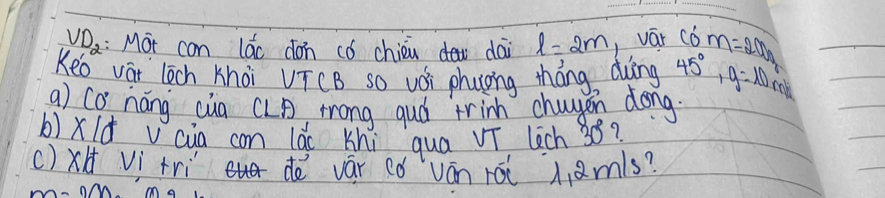 VD2: Một con lắc đơn có chiều dài l = 2m, vật có m = 200g
Kéo vật lệch khỏi VTCB so với phương thẳng đứng 45°, g = 10 m/s
a) Cơ năng của CLĐ trong quá trình chuyển động.
b) Xđ v của con lắc khi qua VT lệch 30°?
c) Xđ vị trí để vật có vận tốc 1,2m/s?